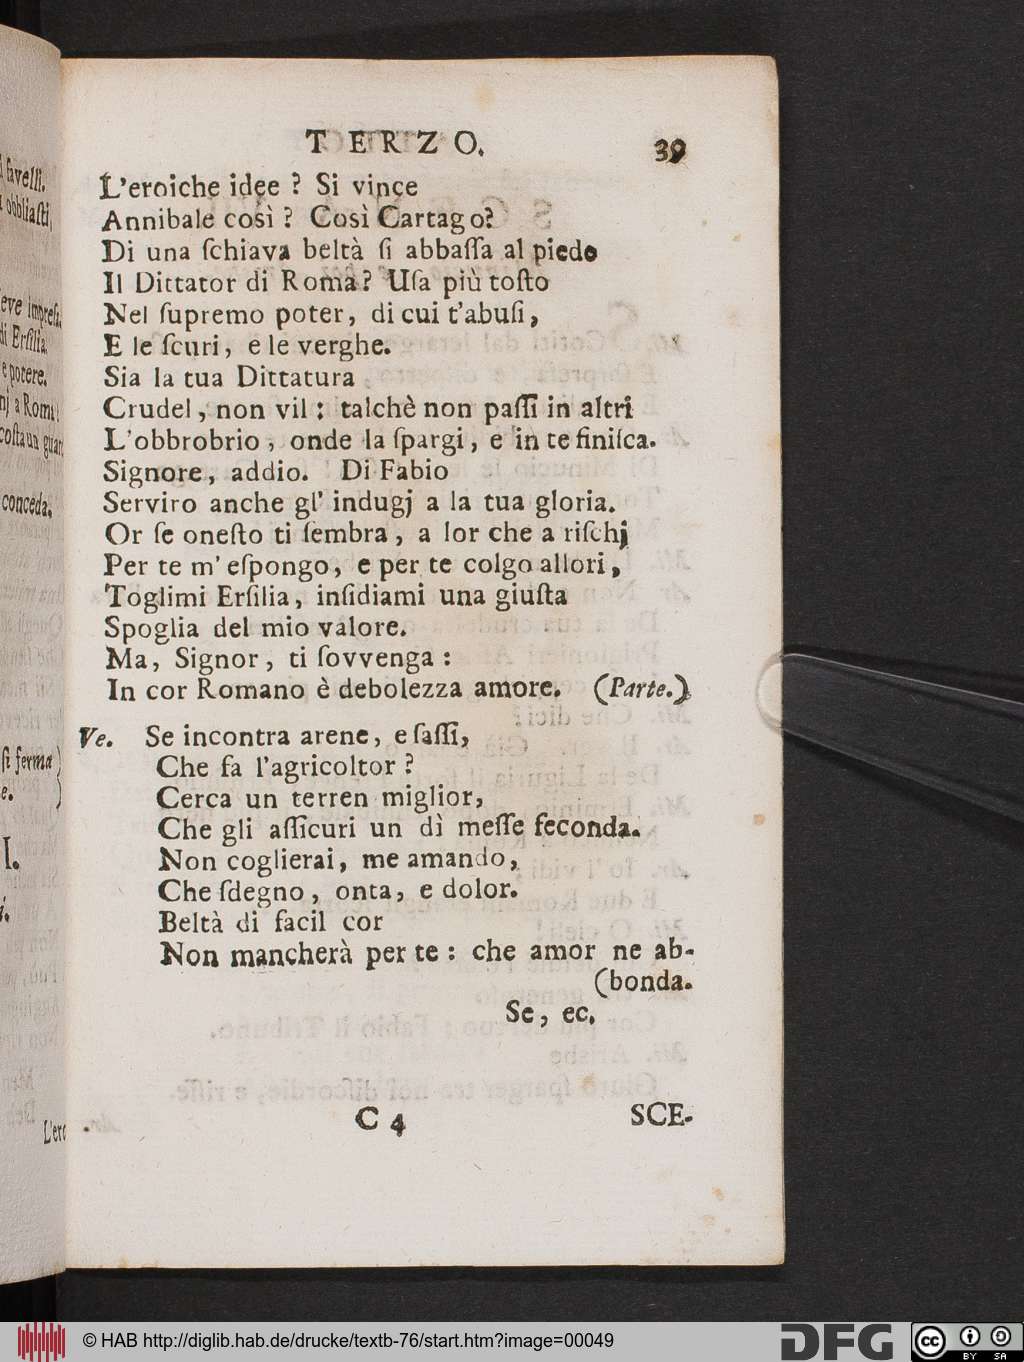 TERZO. 39
L'eroiche idee ? Si vince
Annibale così ? Così Cartago?
Di una ſchiava beltà ſi abbaſſa al piede
Il Dittator di Roma? Uſa più toſto
Nel ſupremo poter, di cui t'abuſi,
E le ſcuri, e le verghe.
Sia la tua Dittatura
Crudel, non vil: talchè non paſſi in altri
L'obbrobrio, onde la ſpargi, e in te finiſca.
Signore, addio. Di Fabio
Serviro anche gl' indugj a la tua gloria.
Or ſe oneſto ti ſembra, a lor che a riſchj
Per te m' eſpongo, e per te colgo allori,
Toglimi Erſilia, inſidiami una giuſta
Spoglia del mio valore.
Ma, Signor, ti ſovvenga:
In cor Romano è debolezza amore. (Parte.)
Ve. Se incontra arene, e ſaſſi,
Che fa l'agricoltor ?
Cerca un terren miglior,
Che gli aſſicuri un dì meſſe feconda.
Non coglierai, me amando,
Che ſdegno, onta, e dolor.
Beltà di facil cor
Non mancherà per te: che amor ne ab-
(bonda.
Se, ec.
C 4 SCE-
favelli.
obbliaſti,
eve impreſa.
di Erſilia.
e potere.
nj a Roma!
coſta un guar
conceda.
ſi ferma)
e. )
I.
i.
L'ero
© HAB http://diglib.hab.de/drucke/textb-76/start.htm?image=00049
DFG
cc BY SA